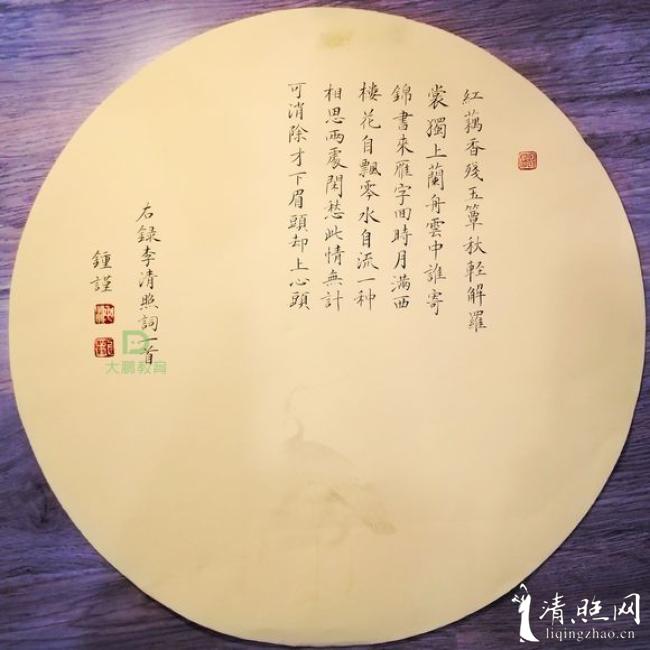 紅藕香殘玉簟秋輕解羅
裳獨上蘭舟雲中誰寄
錦書來雁字回時月滿西
樓花自飄零水自流一种
相思兩處閑愁此情無計
可消除才下眉頭却上心頭
右録李清照詞一首
鍾謹
大鹏教育
清照网
liqingzhao.cn